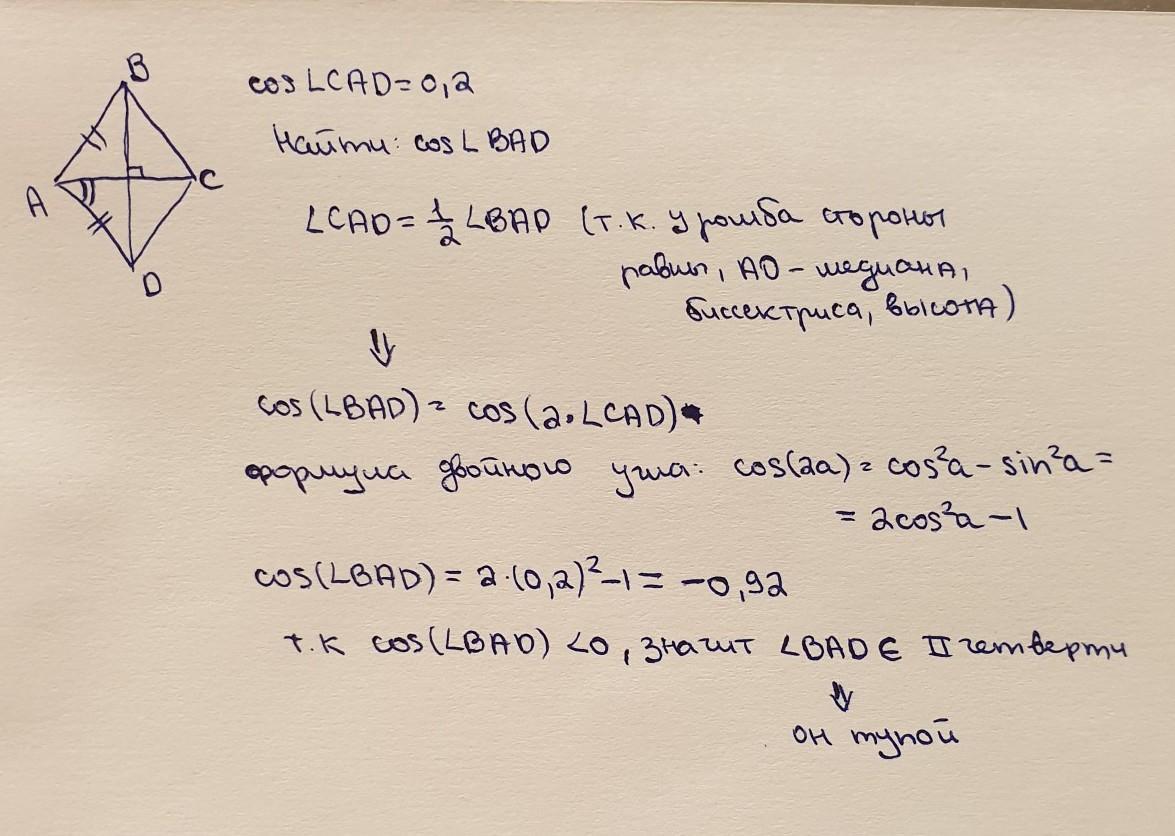 B
A
C
D
cos ∠CAD = 0,2
Найти: cos ∠BAD
∠CAD = 1/2 ∠BAD (т.к. у ромба стороны
равны, AO - медианА,
биссектриса, высотА)
⇓
cos(∠BAD) = cos(2·∠CAD)
формула двойного угла: cos(2a) = cos²a - sin²a =
= 2cos²a - 1
cos(∠BAD) = 2·(0,2)² - 1 = -0,92
т.к cos(∠BAD) < 0, значит ∠BAD ∈ II четверти
⇓
он тупой